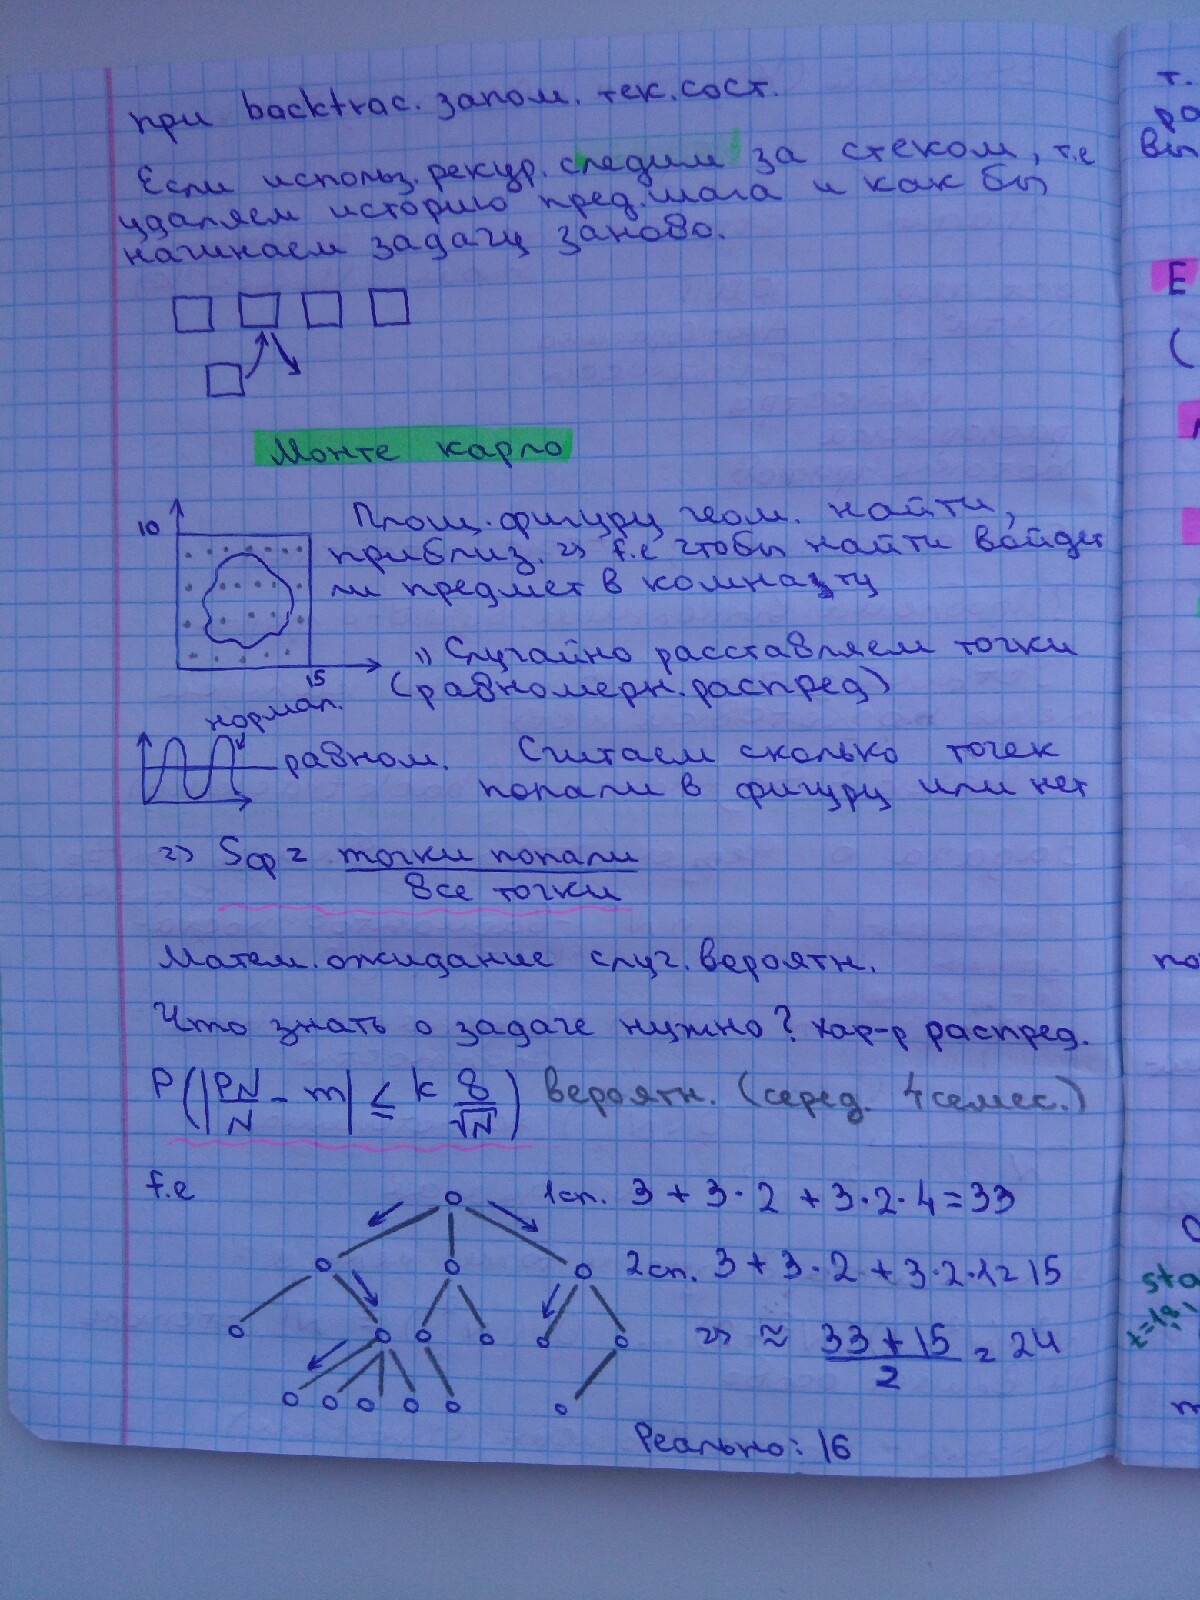 при backtrac. запом. тек. сост.
Если использ. рекур. следим за стеком, т.е
удаляем историю пред. шага и как бы
начинаем задачу заново.
Монте карло
10
15
Площ. фигуру геом. найти,
приближ. => f.e чтобы найти войдет
ли предмет в комнату
1) Случайно расставляем точки
(равномерн. распред)
нормал.
равном.
Считаем сколько точек
попали в фигуру или нет
=> Sф = точки попали
все точки
Матем. ожидание случ. вероятн.
Что знать о задаче нужно? хар-р распред.
P(|PN/N - m| ≤ k 8/√N) вероятн. (серед. 4 семес.)
f.e
1 сп. 3 + 3·2 + 3·2·4 = 33
2 сп. 3 + 3·2 + 3·2·1 = 15
=> ≈ (33 + 15)/2 = 24
Реально: 16
т.
ро
вы
E
(
по
sta